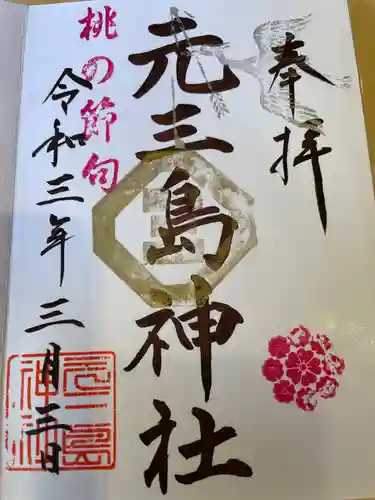 奉拝
元三島神社
桃の節句
令和三年三月三日
元三島
神社